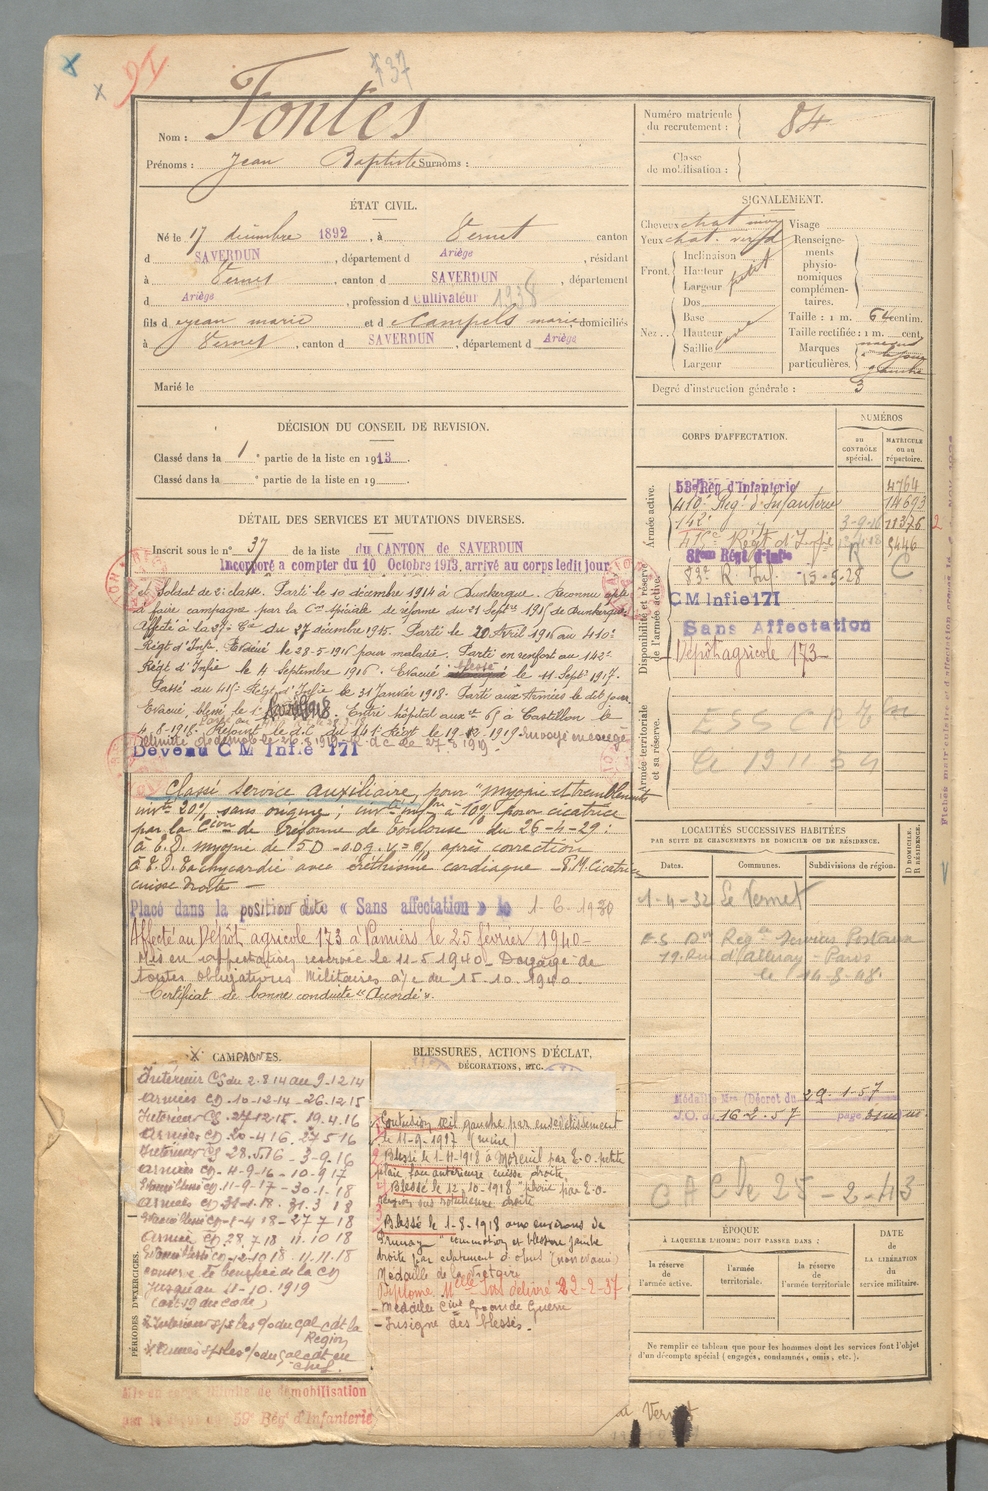 x
x
91
137
Nom : Fontes
Prénoms : Jean Baptiste Surnoms :
Numéro matricule du recrutement : 84
Classe de mobilisation :
ÉTAT CIVIL.
Né le 17 décembre 1892, à Vernet canton
d SAVERDUN, département d Ariège, résidant
à Vernet, canton d SAVERDUN, département
d Ariège, profession d Cultivateur 1938
fils d jean marie et d Campels marie domiciliés
à Vernet, canton d SAVERDUN, département d Ariège
Marié le
SIGNALEMENT.
Cheveux chat
Yeux chat.
Front.
Inclinaison
Hauteur
Largeur petit
Nez.
Dos
Base
Hauteur
Saillie
Largeur
Visage
Renseignements physionomiques complémentaires.
Taille : 1 m. 64 centim.
Taille rectifiée : 1 m. cent.
Marques particulières.
gauche
Degré d'instruction générale : 3
DÉCISION DU CONSEIL DE REVISION.
Classé dans la 1e partie de la liste en 1913.
Classé dans la e partie de la liste en 19
DÉTAIL DES SERVICES ET MUTATIONS DIVERSES.
Inscrit sous le n° 37 de la liste du CANTON de SAVERDUN
Incorporé a compter du 10 Octobre 1913, arrivé au corps ledit jour
et Soldat de 2e classe. Parti le 10 décembre 1914 à Dunkerque. Reconnu apte
à faire campagne par la Con spéciale de réforme du 21 Septbre 1915 de Dunkerque
Affecté à la 27e Cie du 27 décembre 1915. Parti le 20 Avril 1916 au 410e
Régt d'Infie. Evacué le 28-5-1916 pour malade. Parti en renfort au 142e
Régt d'Infie le 4 Septembre 1916. Evacué blessé le 11 Septbre 1917.
Passé au 415e Régt d'Infie le 31 Janvier 1918. Parti aux Armées le dit jour
Evacué, blessé le 1er 1918. Entré hôpital auxre 65 à Castillon le
4-8-1918. Rejoint le d.d. du 141e Régt le 19-12-1919
Devenu C M Infie 171
Classé Service Auxiliaire, pour "myopie et tremblements
invté 20% sans origine; invté infre à 10% pour cicatrice
par la Cion de Réforme de Toulouse du 26-4-29:
à E.D. myopie de 5D - ODG. V = après correction
à E.D. Tachycardie avec éréthisme cardiaque - P.M. Cicatrice
cuisse droite -
Placé dans la position dite « Sans affectation » le 1-6-1930
Affecté au Dépôt agricole 173 à Pamiers le 25 février 1940-
Mis en affectation réservée le 11-5-1940. Dégagé de
toutes obligations militaires à/c du 15-10-1940.
Certificat de bonne conduite "Accordé".
CORPS D'AFFECTATION.
NUMÉROS
AU CONTRÔLE spécial.
MATRICULE ou au répertoire.
Armée active.
53e Rég d'Infanterie 4764
410e Régt d'Infanterie 14693
142e 3-9-16 11376 2
415e Régt d'Infie 9446
Disponibilité et réserve de l'armée active.
81ème Régt d'Infie R
83e R. Inf. 15-5-28 C
C M Infie 171
Sans Affectation
Dépôt agricole 173
Armée territoriale et sa réserve.
LOCALITÉS SUCCESSIVES HABITÉES
PAR SUITE DE CHANGEMENTS DE DOMICILE OU DE RÉSIDENCE.
Dates.
Communes.
Subdivisions de région.
D DOMICILE. R RÉSIDENCE.
1-4-32 Le Vernet
19 Rue d'Alleray - Paris
le 14-8-48.
Médaille Mre (Décret du 29-1-57
J.O. du 16 2-57 page
C A C le 25-2-43
CAMPAGNES.
Intérieur CS du 2.8.14 au 9-12-14
Armées CD 10-12-14 - 26-12-15
Intérieur CS 27-12-15 . 19.4.16
Armées CD 20-4 16 . 27 5 16
Intérieur CS 28.5.16 - 3-9.16
Armées CD 4-9-16 - 10-9 17
Intr blessé CD 11-9-17 - 30-1-18
Armées CD 31-1-18 . 31.3 18
Intr blessé CD 1-4 18 - 27 7 18
Armées CD 28 7 18 11.10 18
Intr blessé CD 12-10 18 . 11.11.18
conserve le bénéfice de la CD
jusqu'au 11-10.1919
(art 19 du code)
PÉRIODES D'EXERCICES.
BLESSURES, ACTIONS D'ÉCLAT, DÉCORATIONS, ETC.
Contusion œil gauche par ensevelissement
le 11-9-1917 (mine)
Blessé le 1-4-1918 à Moreuil par E.O. petite
plaie face antérieure cuisse droite
Blessé le 12-10-1918 "plaie par E.O.
région sus rotulienne droite
Blessé le 1-8-1918 aux environs de
"commotion et blessure jambe
droite par éclatement d'obus
Médaille de la Victoire
22-2-37
- Médaille Cive Grande Guerre
- Insigne des blessés.
ÉPOQUE
À LAQUELLE L'HOMME DOIT PASSER DANS :
la réserve de l'armée active.
l'armée territoriale.
la réserve de l'armée territoriale
DATE de LA LIBÉRATION du service militaire.
Ne remplir ce tableau que pour les hommes dont les services font l'objet
d'un décompte spécial (engagés, condamnés, omis, etc.).
démobilisation
59e Régt d'Infanterie